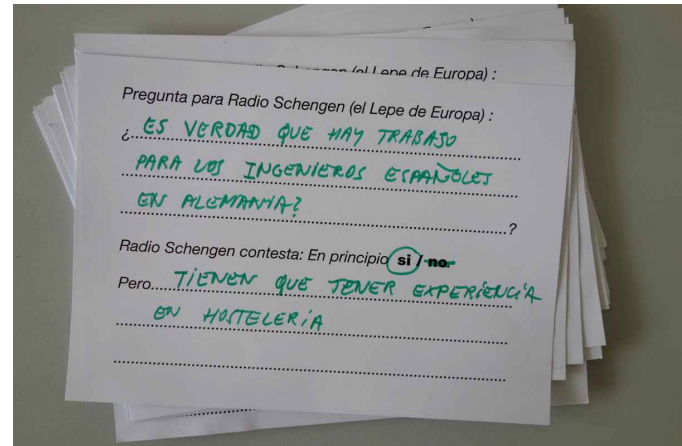 (el Lepe de Europa) :
Pregunta para Radio Schengen (el Lepe de Europa) :
¿ ES VERDAD QUE HAY TRABAJO
PARA LOS INGENIEROS ESPAÑOLES
EN ALEMANIA? ?
Radio Schengen contesta: En principio si / no.
Pero TIENEN QUE TENER EXPERIENCIA
EN HOSTELERÍA